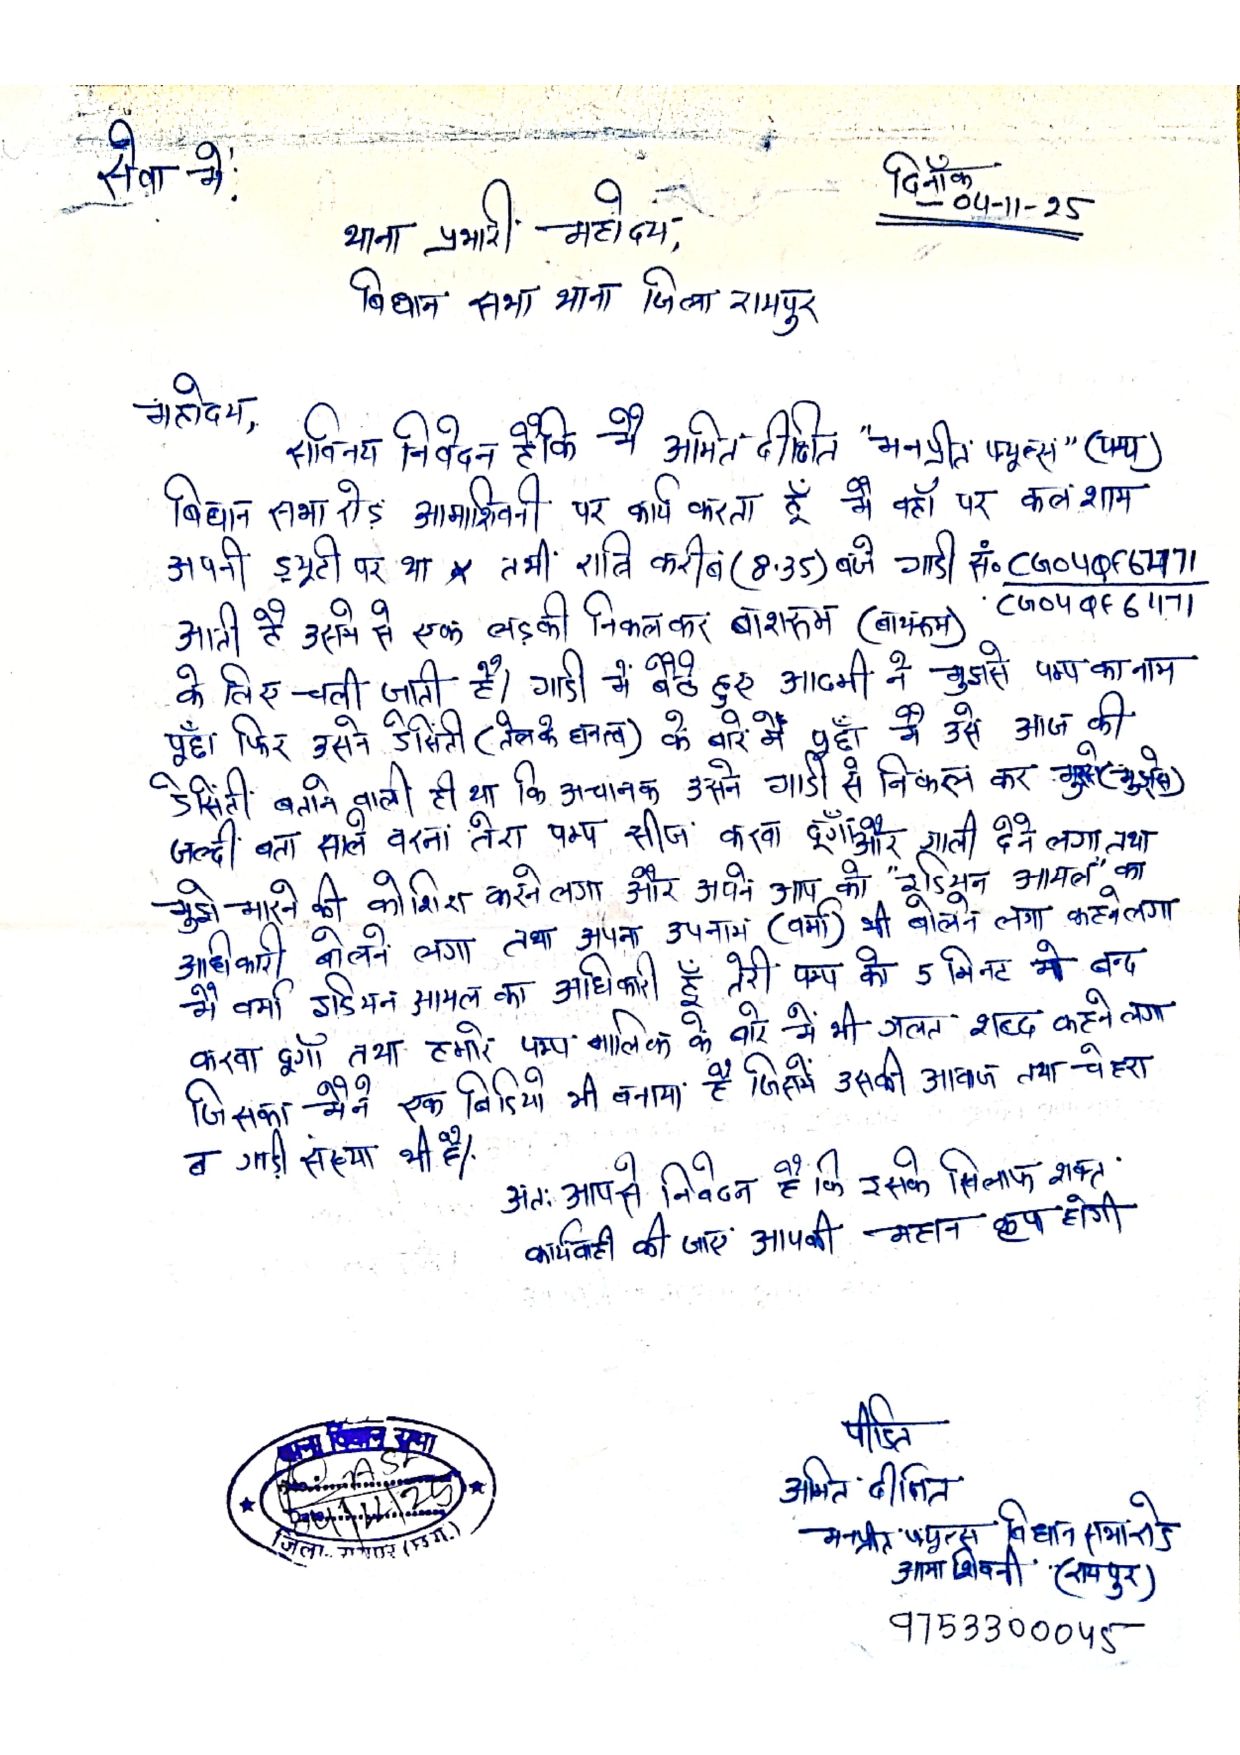 सेवा में:
दिनाँक
04-11-25
थाना प्रभारी महोदय,
बिधान सभा थाना जिला रायपुर
महोदय,
सविनय निवेदन है कि मैं अमित दीक्षित "मनप्रीत फ्यूल्स" (पम्प)
बिधान सभा रोड़ आमाशिवनी पर कार्य करता हूँ मैं वहाँ पर कल शाम
अपनी ड्यूटी पर था तभी रात्रि करीब (8.35) बजे गाडी सं०
CG04QF6471
आती है उसमे से एक लड़की निकल कर बाशरूम (बाथरूम)
के लिए चली जाती है। गाडी में बैठे हुए आदमी ने मुझसे पम्प का नाम
पूँछा फिर उसने डेसिंटी (तेल के घनत्व) के बारे में पूँछा मैं उसे आज की
डेसिंटी बताने वाला ही था कि अचानक उसने गाडी से निकल कर (मुझसे)
जल्दी बता साले वरना तेरा पम्प सीज करवा दूँगा और गाली देने लगा तथा
मुझे मारने की कोशिश करने लगा और अपने आप को "इडियन आयल" का
अधिकारी बोलने लगा तथा अपना उपनाम (वर्मा) भी बोलने लगा कहने लगा
मैं वर्मा इडियन आयल का अधिकारी हूँ तेरी पम्प को 5 मिनट में बन्द
करवा दूगाँ तथा हमारे पम्प मालिक के बारे में भी गलत शब्द कहने लगा
जिसका मैंने एक बिडियो भी बनाया है जिसमें उसकी आवाज तथा चेहरा
ब गाड़ी संख्या भी है।
अतः आपसे निवेदन है कि इसके खिलाफ शक्त
कार्यवाही की जाए आपकी महान कृपा होगी
पीडित
अमित दीक्षित
मनप्रीत फ्यूल्स बिधान सभा रोड
आमा शिवनी (रायपुर)
9753300045
थाना विधान सभा
ASI
04/11/25
जिला.. रायपुर (छ.ग.)